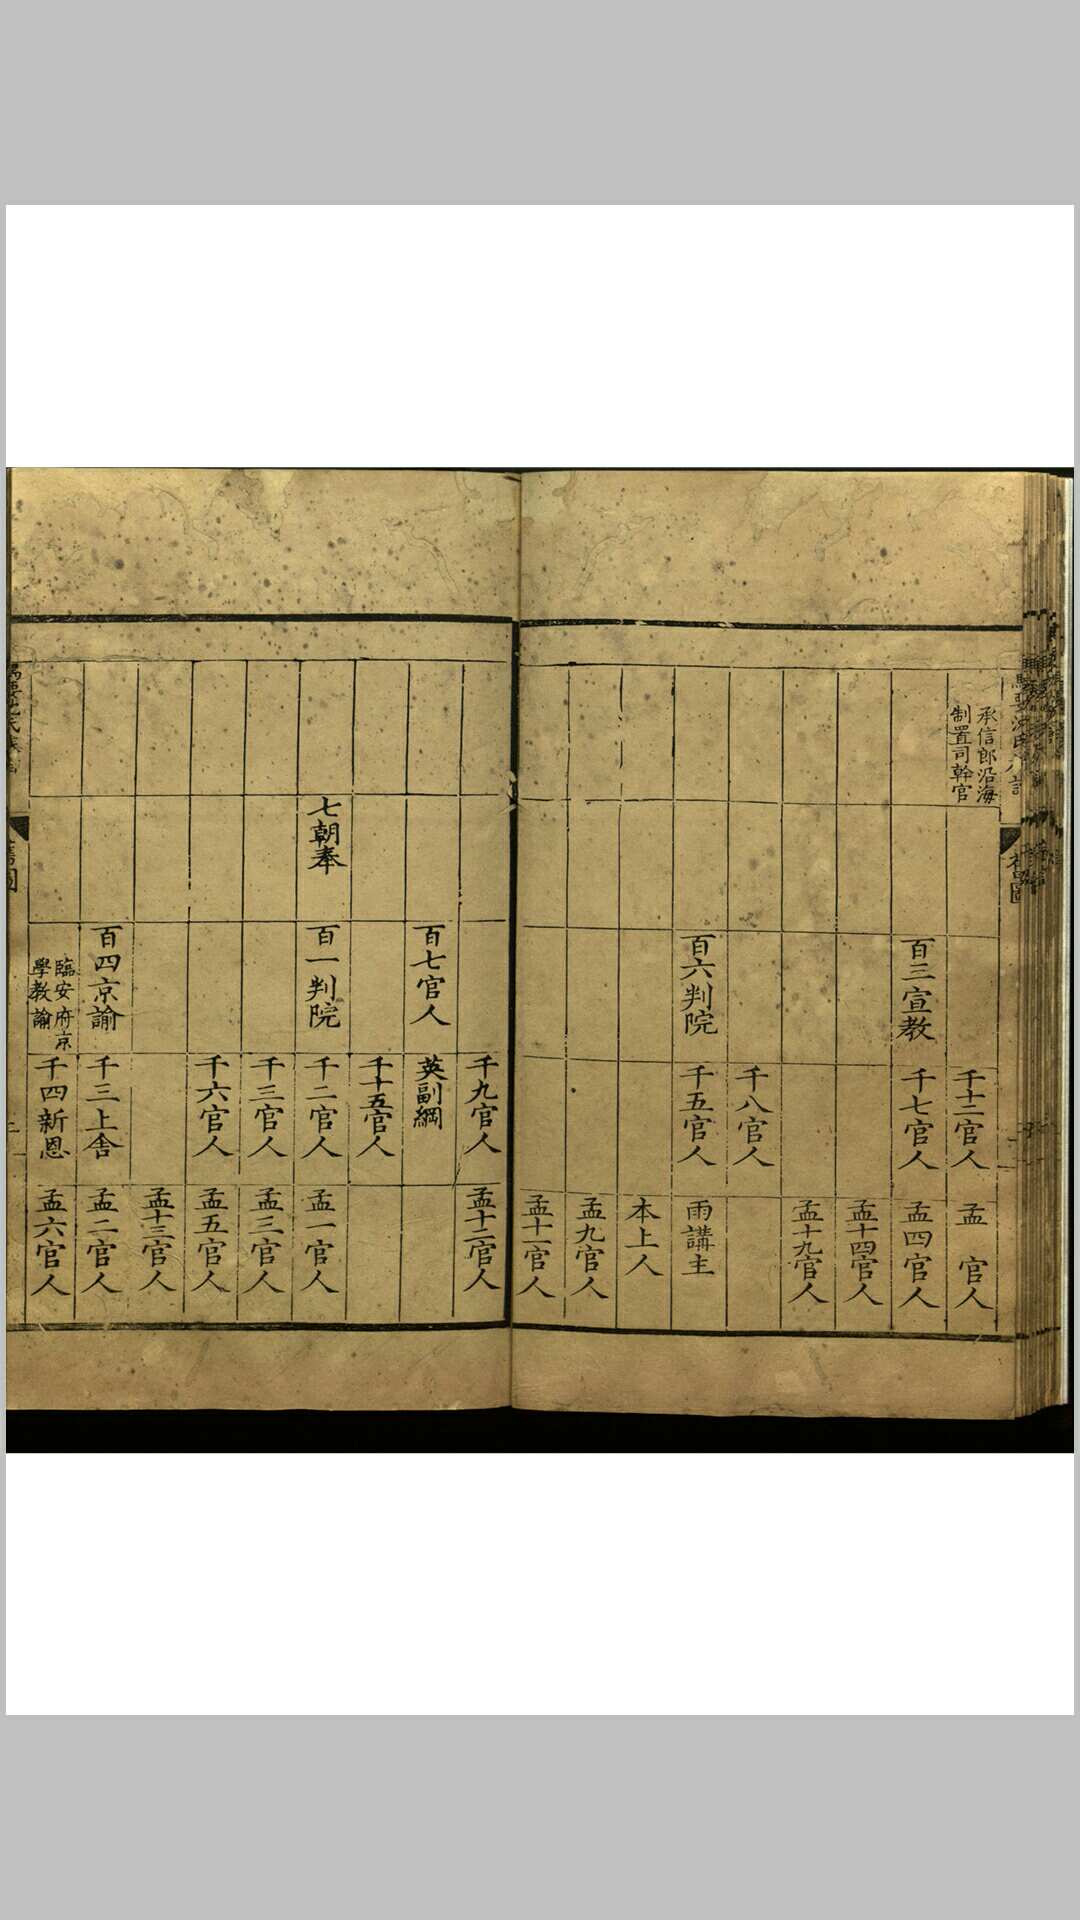 承信郎沿海
制置司幹官
千十二官人
孟 官人
百三宣教
千七官人
孟四官人
孟十四官人
孟十九官人
千八官人
百六判院
千五官人
雨講主
本上人
孟九官人
孟十一官人
千九官人
孟十二官人
百七官人
英副綱
千十五官人
七朝奉
百一判院
千二官人
孟一官人
千三官人
孟三官人
千六官人
孟五官人
孟十三官人
百四京諭
千三上舍
孟二官人
臨安府京
學教諭
千四新恩
孟六官人